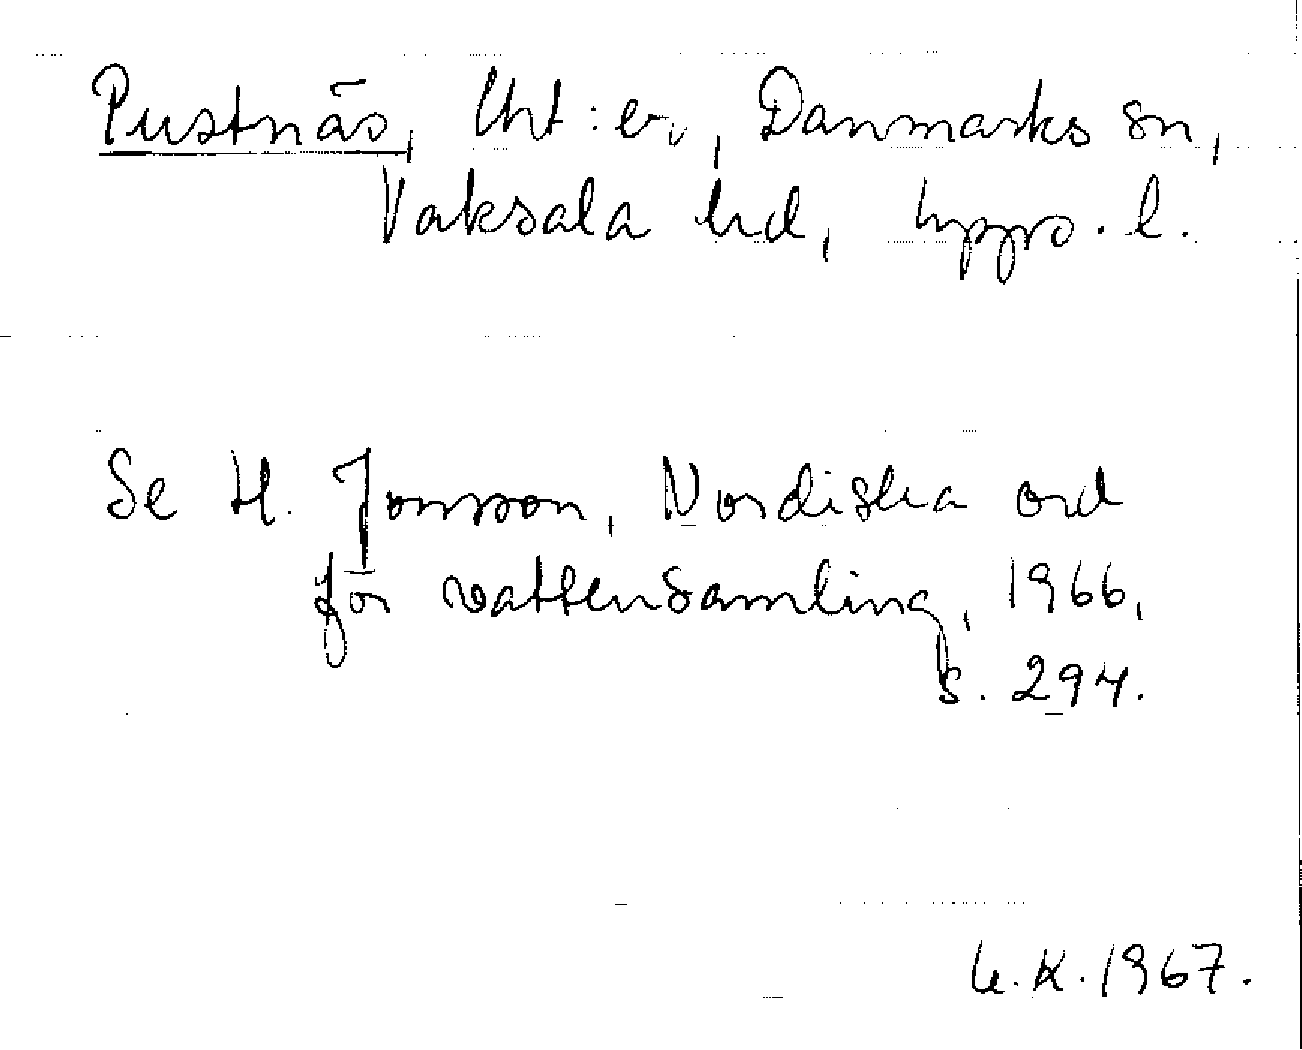 Pustnäs, Uht:er, Danmarks sn,
Vaksala hd, Upps. l.
Se H. Jonsson, Nordiska ord
för vattensamling, 1966,
s. 294.
1967.